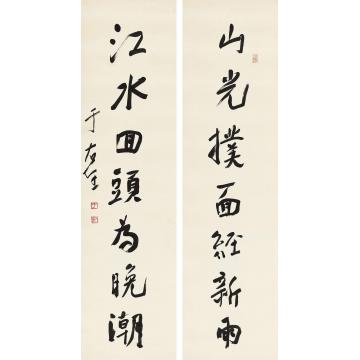 山光撲面經新雨
江水回頭為晚潮
于右任